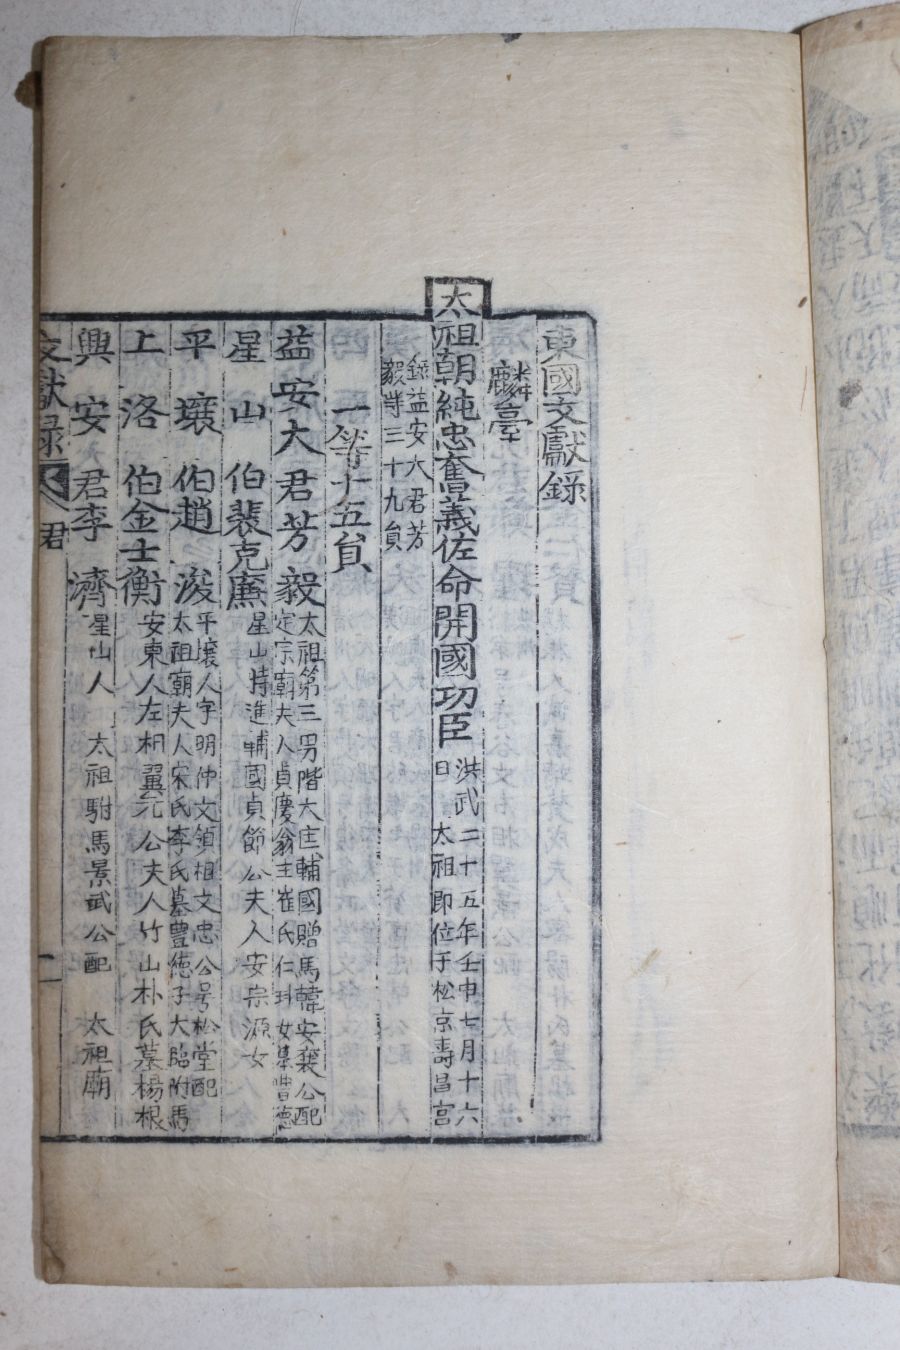 東國文獻錄
麟臺
太祖朝純忠奮義佐命開國功臣
洪武二十五年壬申七月十六
日 太祖卽位于松京壽昌宮
錄益安大君芳
毅等三十九員
一等十五員
益安大君芳毅
太祖第三男階大匡輔國贈馬韓安襄公配
定宗廟夫人貞慶翁主崔氏仁㺶女墓豊德
星山伯裴克廉
星山特進輔國貞節公夫人安宗源女
平壤伯趙浚
平壤人字明仲文領相文忠公号松堂配
太祖廟夫人宋氏李氏墓豊德子大臨附馬
上洛伯金士衡
安東人左相翼元公夫人竹山朴氏墓楊根
興安君李濟
星山人 太祖駙馬景武公配 太祖廟
文獻錄 君 一